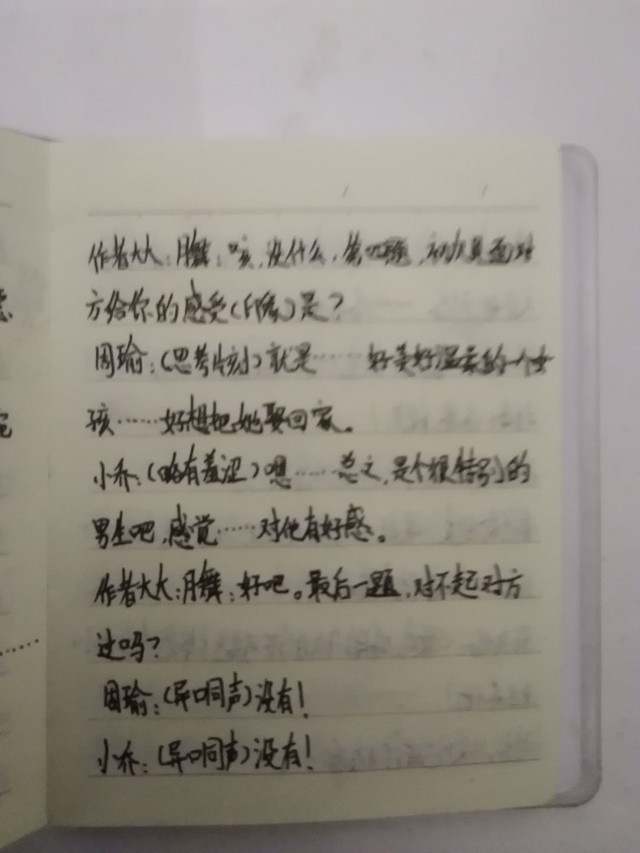 作者大大:月舞:咳,没什么,第四题,初次见面对
方给你的感受(印象)是?
周瑜:(思考片刻)就是……好美好温柔的一个女
孩……好想把她娶回家。
小乔:(略有羞涩)嗯……总之,是个很特别的
男生吧,感觉……对他有好感。
作者大大:月舞:好吧。最后一题,对不起对方
过吗?
周瑜:(异口同声)没有!
小乔:(异口同声)没有!